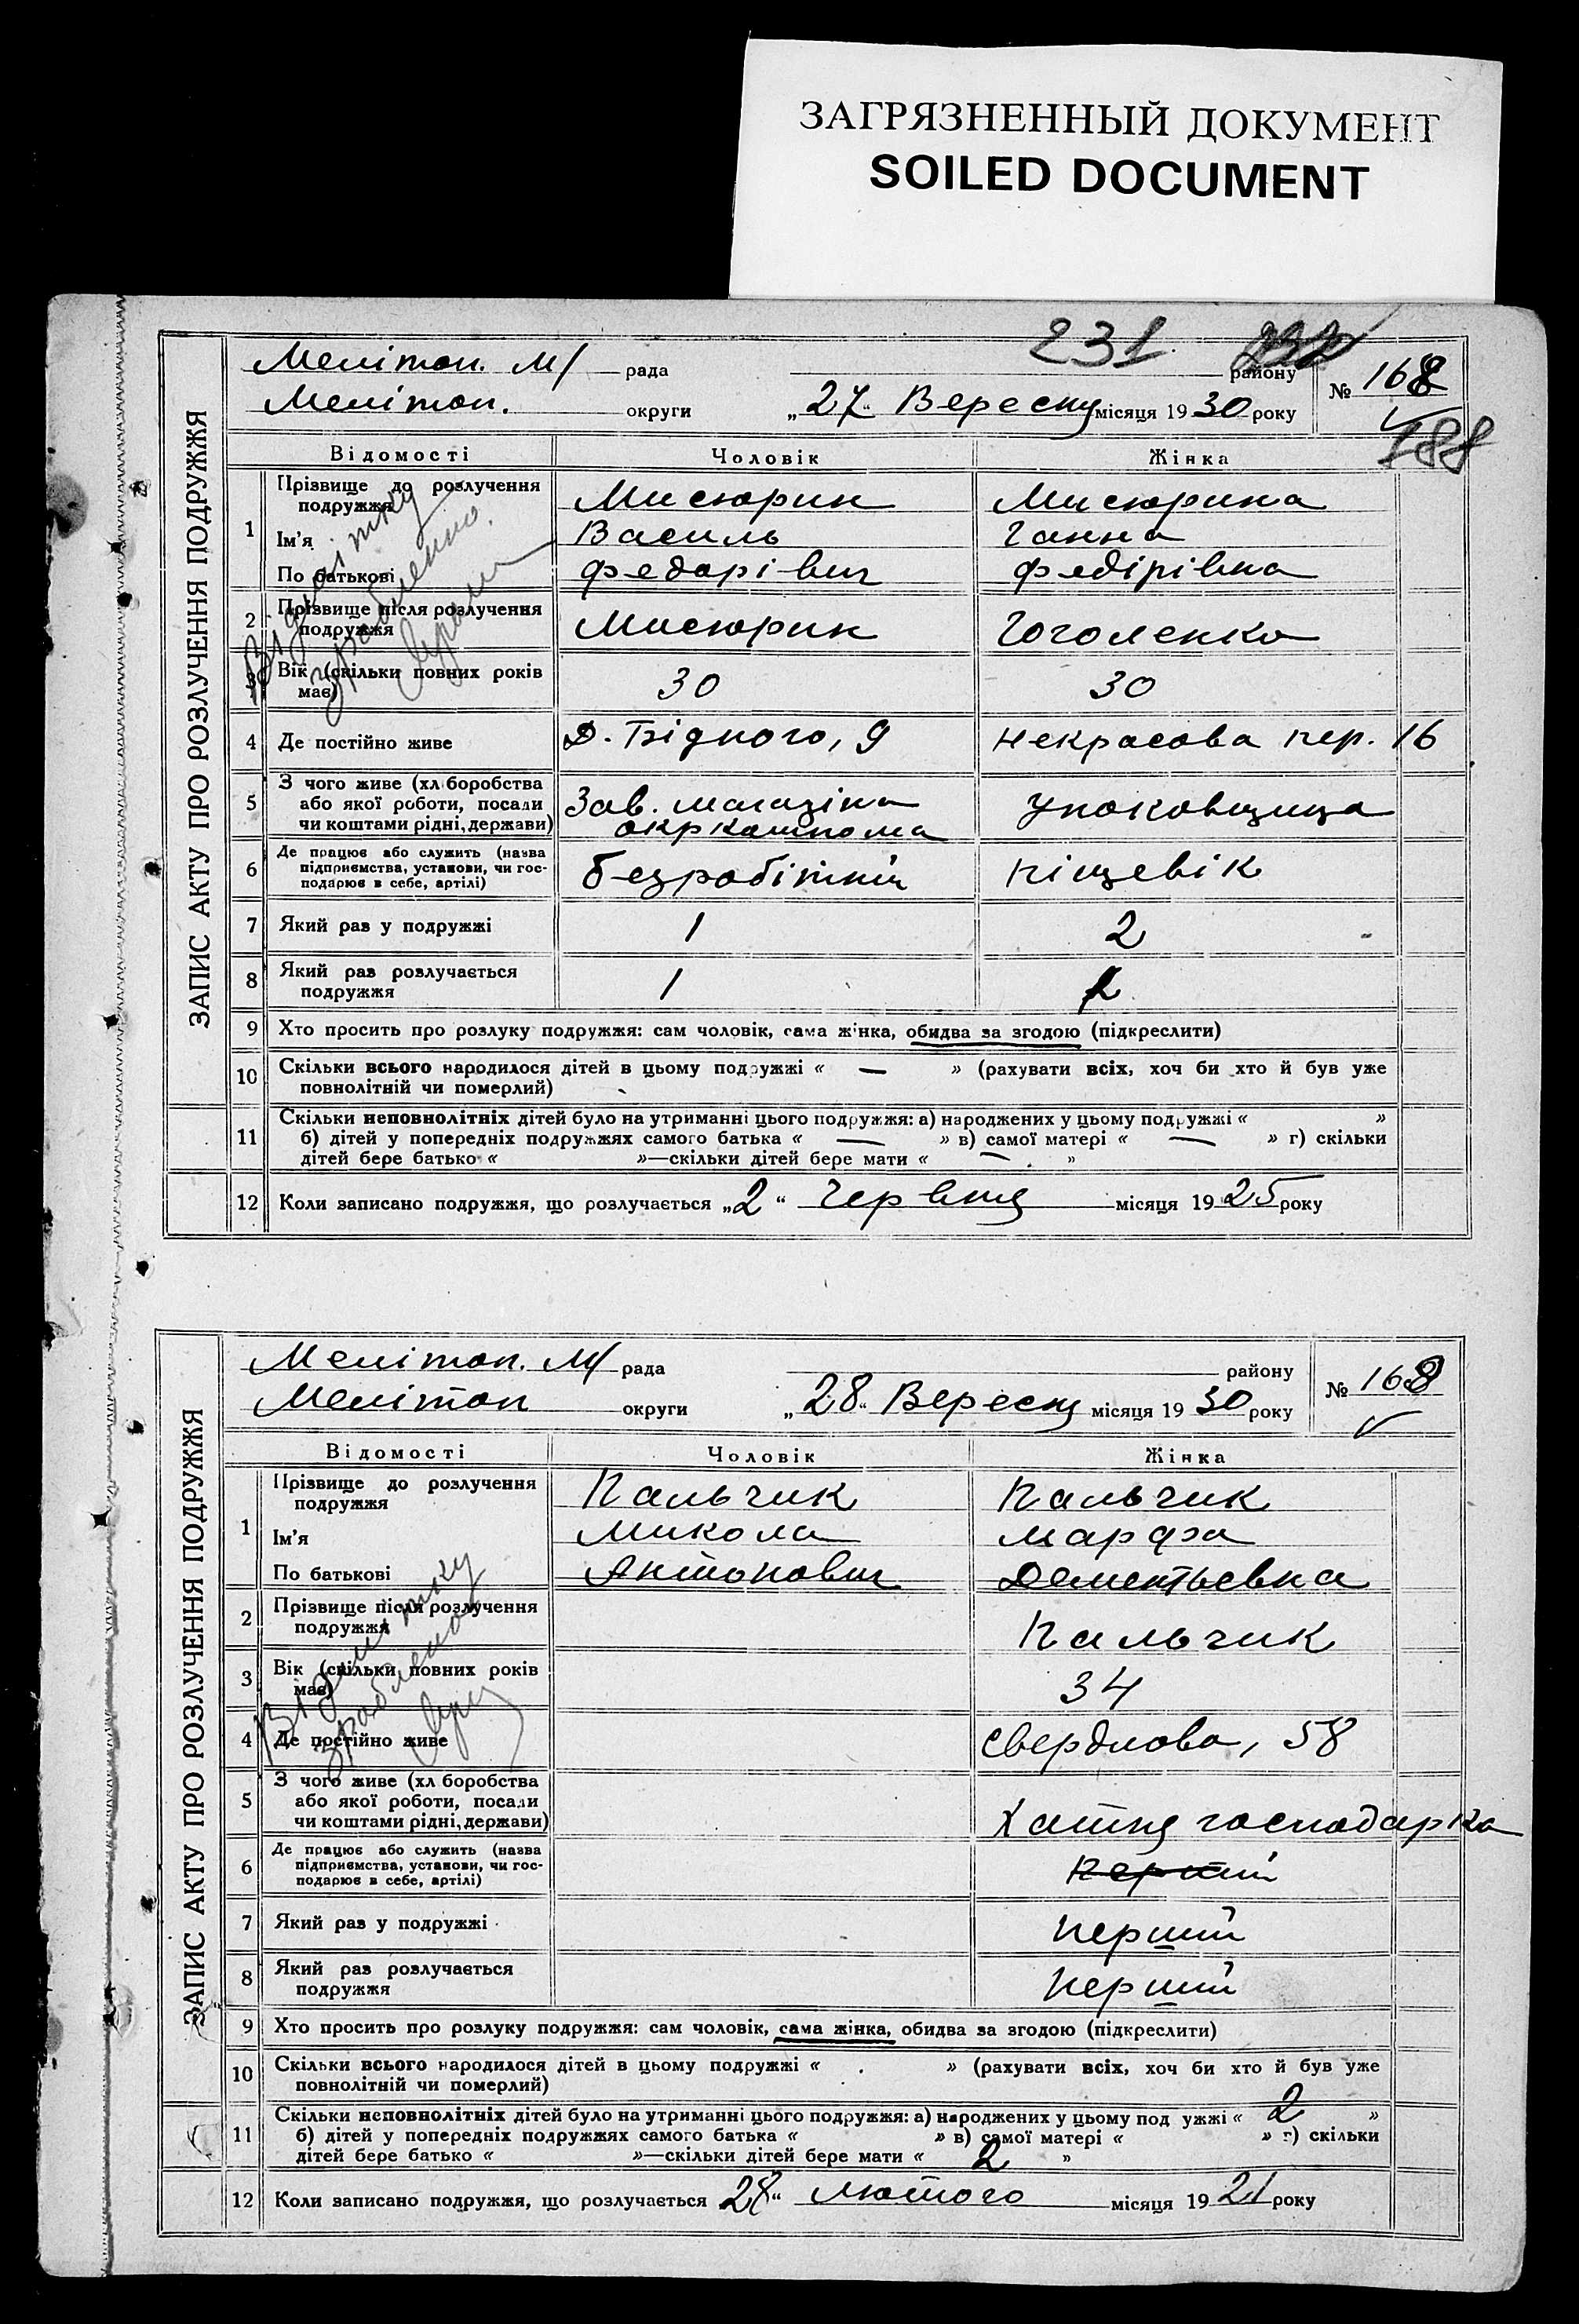 ЗАГРЯЗНЕННЫЙ ДОКУМЕНТ
SOILED DOCUMENT
231
ЗАПИС АКТУ ПРО РОЗЛУЧЕННЯ ПОДРУЖЖЯ
Мелітоп. М/ рада району № 168
Мелітоп. округи „27“ Вересня місяця 1930 року
188
Відомості Чоловік Жінка
1 Прізвище до розлучення подружжя Мисюрин Мисюрина
Ім'я Василь Ганна
По батькові Федорівич Федірівна
2 Прізвище після розлучення подружжя Мисюрин Гоголенко
3 Вік (скільки повних років має) 30 30
4 Де постійно живе Д. Бідного, 9 Некрасова пер. 16
5 З чого живе (хліборобства
або якої роботи, посади
чи коштами рідні, держави) Зав. магазіна Упаковщиця
6 Де працює або служить (назва
підприємства, установи, чи гос-
подарює в себе, артілі) безробітній піщевік
7 Який раз у подружжі 1 2
8 Який раз розлучається
подружжя 1 2
9 Хто просить про розлуку подружжя: сам чоловік, сама жінка, обидва за згодою (підкреслити)
10 Скільки всього народилося дітей в цьому подружжі « — » (рахувати всіх, хоч би хто й був уже
повнолітній чи померлий)
11 Скільки неповнолітніх дітей було на утриманні цього подружжя: а) народжених у цьому подружжі « »
б) дітей у попередніх подружжях самого батька « — » в) самої матері « — » г) скільки
дітей бере батько « »—скільки дітей бере мати « — »
12 Коли записано подружжя, що розлучається „2“ Червня місяця 1925 року
Відмітку
зроблено
ЗАПИС АКТУ ПРО РОЗЛУЧЕННЯ ПОДРУЖЖЯ
Мелітоп. М/ рада району № 168
Мелітоп округи „28“ Вересня місяця 1930 року
Відомості Чоловік Жінка
1 Прізвище до розлучення подружжя Пальчик Пальчик
Ім'я Микола Марфа
По батькові Антонович Дементьевна
2 Прізвище після розлучення подружжя Пальчик
3 Вік (скільки повних років має) 34
4 Де постійно живе Свердлова, 58
5 З чого живе (хліборобства
або якої роботи, посади
чи коштами рідні, держави) Хатня господарка
6 Де працює або служить (назва
підприємства, установи, чи гос-
подарює в себе, артілі) Перший
7 Який раз у подружжі Перший
8 Який раз розлучається
подружжя Перший
9 Хто просить про розлуку подружжя: сам чоловік, сама жінка, обидва за згодою (підкреслити)
10 Скільки всього народилося дітей в цьому подружжі « » (рахувати всіх, хоч би хто й був уже
повнолітній чи померлий)
11 Скільки неповнолітніх дітей було на утриманні цього подружжя: а) народжених у цьому подружжі « 2 »
б) дітей у попередніх подружжях самого батька « » в) самої матері « » г) скільки
дітей бере батько « »—скільки дітей бере мати « 2 »
12 Коли записано подружжя, що розлучається „28“ Лютого місяця 1921 року
Відмітку
зроблено